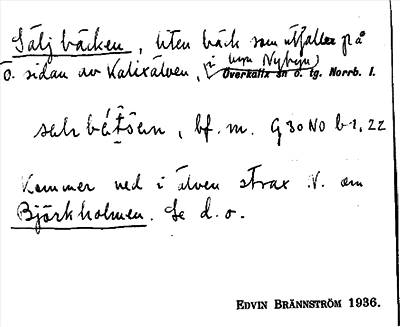 Säljbäcken, liten bäck som utfaller på
Ö. sidan av Kalixälven, i byn Nybyn,
Överkalix sn o. tg. Norrb. l.
bf. m. G 30 NO b-1, 22
Kommer ned i älven strax N. om
Björkholmen. Se d. o.
EDVIN BRÄNNSTRÖM 1936.